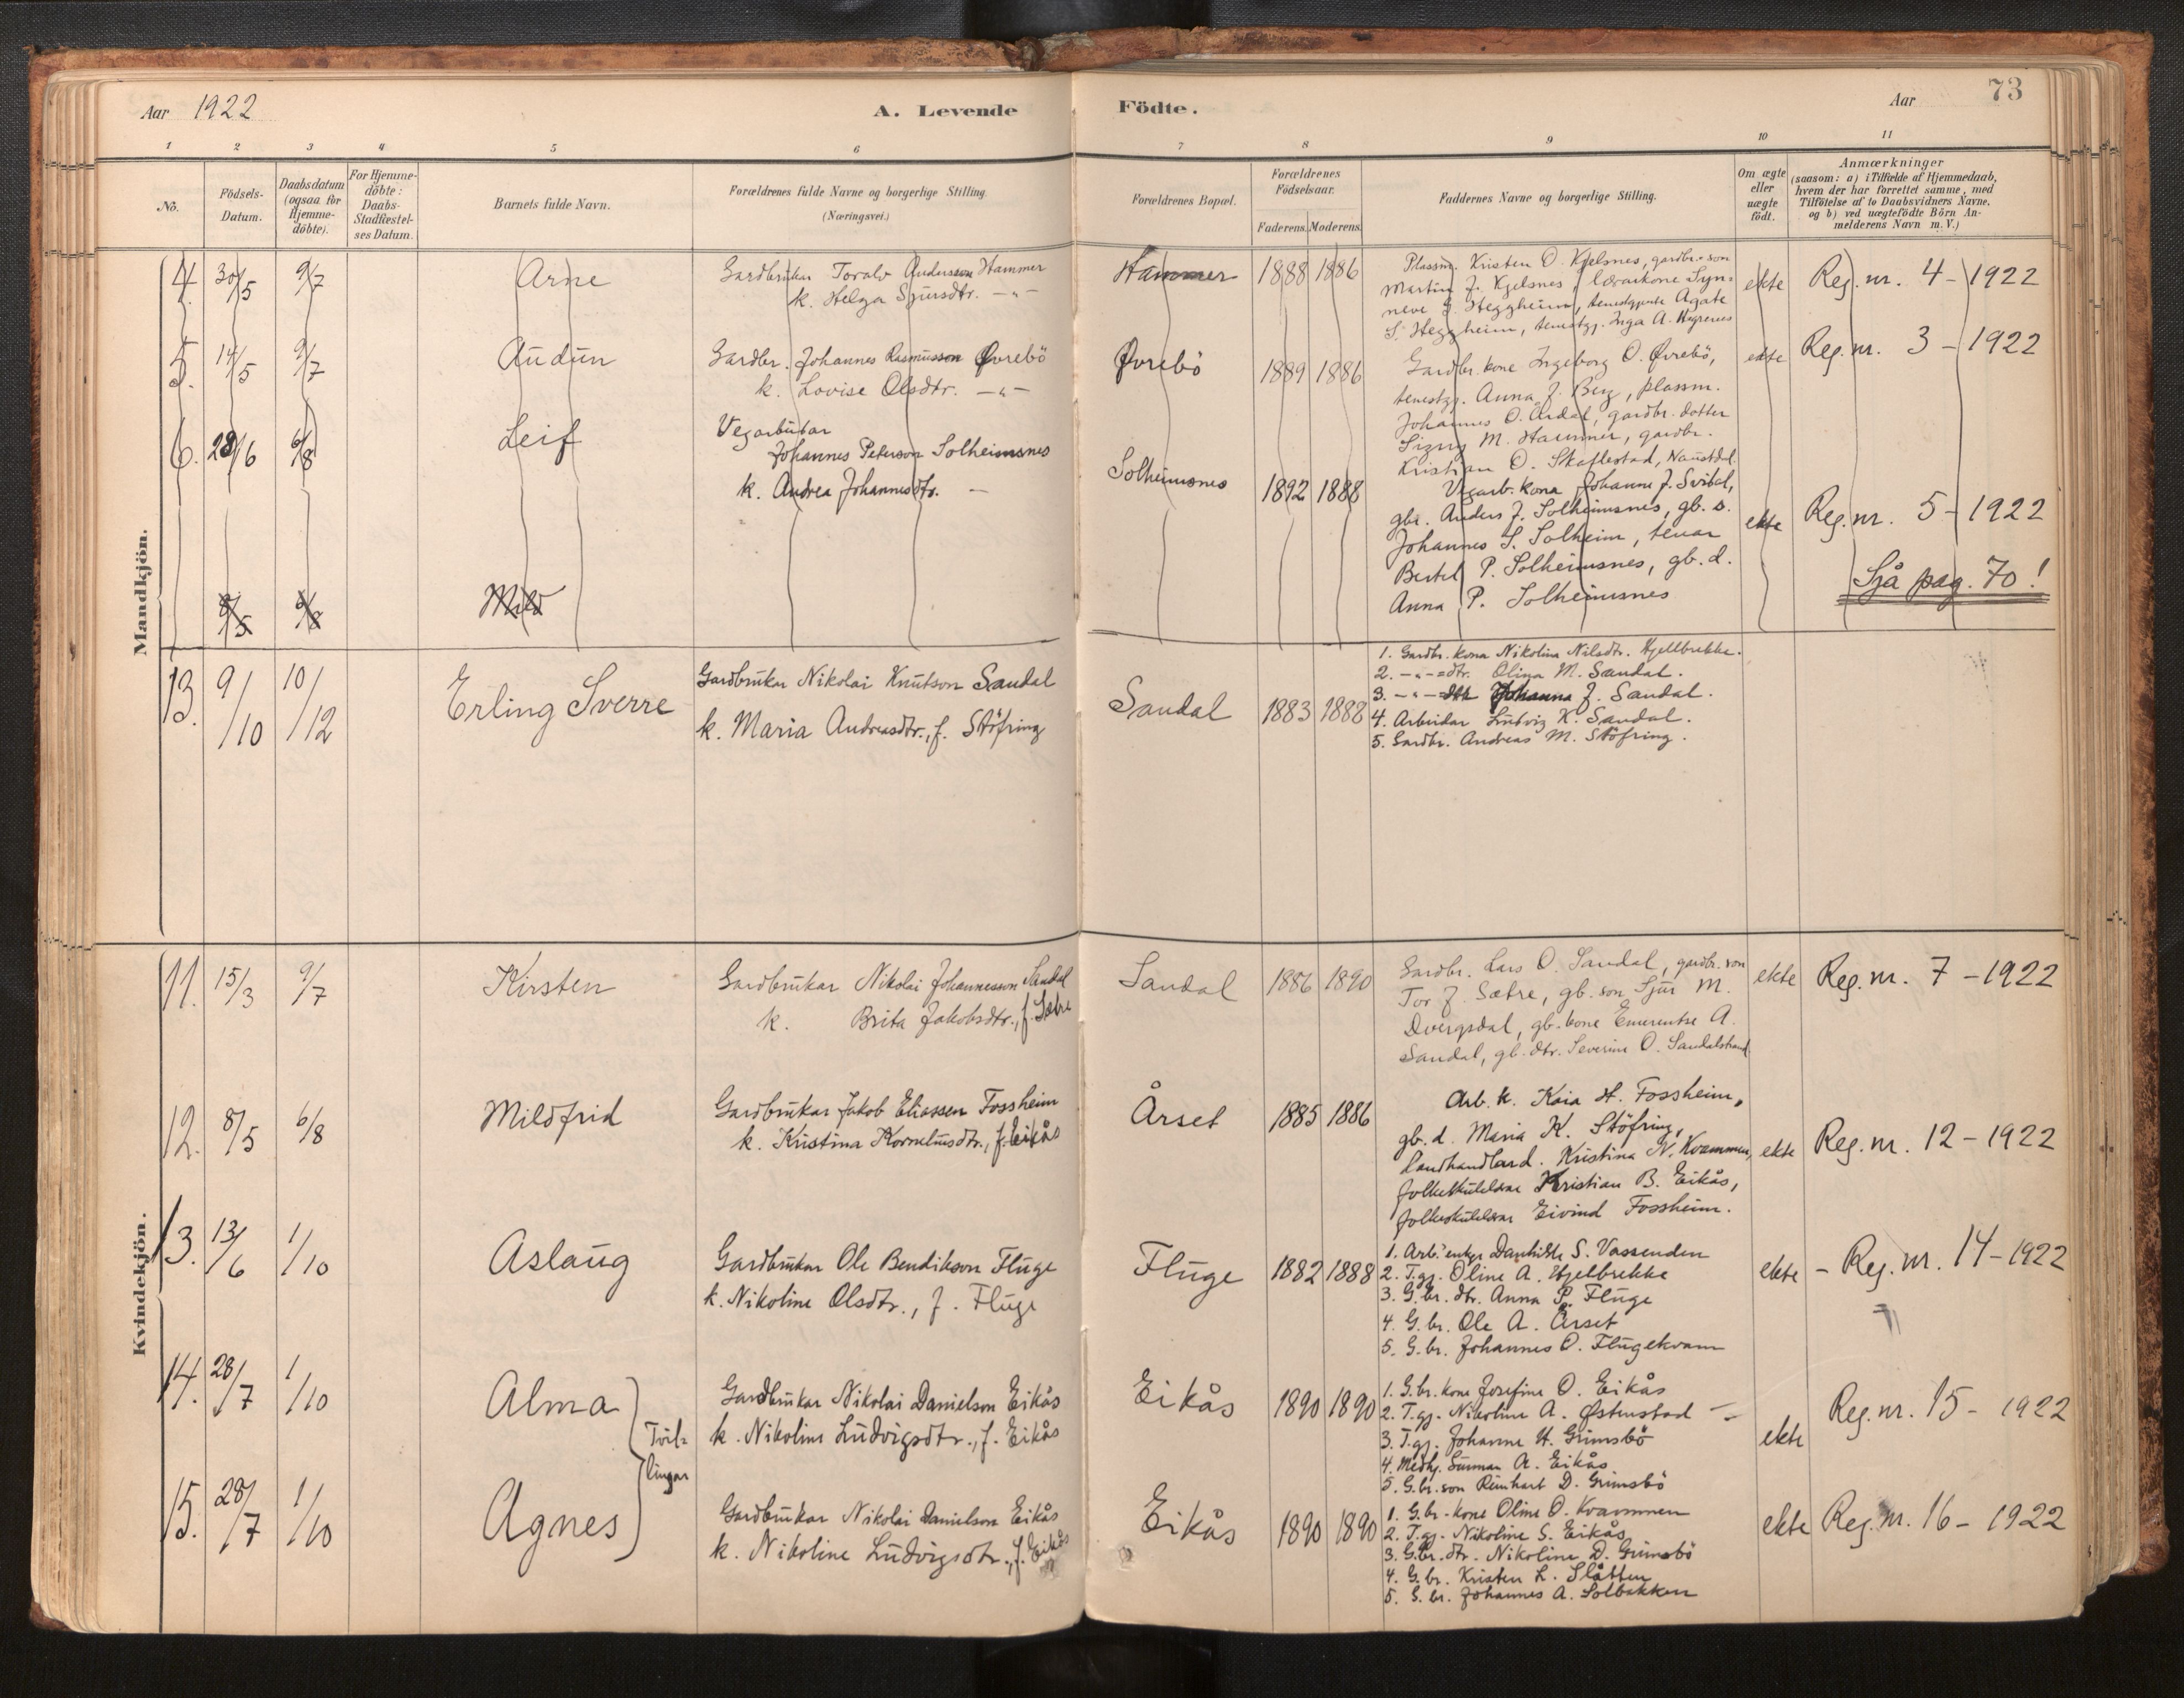 Aar 1922
A. Levende
Födte.
Aar
73
1 2 3 4 5 6 7 8 9 10 11
Nö.
Födsels-
Datum.
Daabsdatum
(ogsaa for
Hjemme-
döbte).
For Hjemme-
döbte:
Daabs-
Stadfæstel-
ses Datum.
Barnets fulde Navn.
Forældrenes fulde Navne og borgerlige Stilling.
(Næringsvei.)
Forældrenes Bopæl.
Forældrenes
Födselsaar.
Faderens. Moderens.
Faddernes Navne og borgerlige Stilling.
Om ægte
eller
uægte
födt.
Anmærkninger
(saasom: a) i Tilfælde af Hjemmedaab,
hvem der har forrettet samme, med
Tilföielse af to Daabsvidners Navne,
og b) ved uægtefödte Börn An-
melderens Navn m.V.)
Mandkjön.
4. 30/5 9/7 Arne
Gardbrukar Toralv Andersson Hammer
k. Helga Sjursdtr. -"-
Hammer 1888 1886
Plassm. Kristen O. Kjelsnes, gardbr. son
Martin J. Kjelsnes, lærarkone Syn-
neve S. Heggheim, tenestgjente Agate
S. Heggheim, tenestgj. Inga A.
ekte Reg. nr. 4 - 1922
5. 14/5 9/7 Audun
Gardbr. Johannes Rasmusson Øvrebö
k. Lovise Olsdtr. -"-
Øvrebö 1889 1886
Gardbr. kone Ingeborg O. Øvrebö,
tenestgj. Anna J. Berg, plassm.
Johannes O. Årdal, gardbr. dotter
Signy M. Hammer, gardbr.
Kristian O. Skaflestad, Naustdal
ekte Reg. nr. 3 - 1922
6. 28/6 6/8 Leif
Vegarbeidar
Johannes Peterson Solheimsnes
k. Andrea Johannesdtr. -
Solheimsnes 1892 1888
Vegarb. kona Johanne J. Svidal,
gbr. Anders J. Solheimsnes, gb. s.
Johannes S. Solheim, tenar
Bertel P. Solheimsnes, gb. d.
Anna P. Solheimsnes
ekte Reg. nr. 5 - 1922
8/5 6/8 Mild
Sjå pag. 70!
13. 9/10 10/12 Erling Sverre
Gardbrukar Nikolai Knutson Sandal
k. Maria Andreasdtr., f. Stöfring
Sandal 1883 1888
1. Gardbr. kona Nikolina Nilsdtr. Hjellbrekke.
2. -"- dtr. Olina M. Sandal.
3. -"- dtr. Johanna J. Sandal.
4. Arbeidar Ludvig K. Sandal.
5. Gardbr. Andreas M. Stöfring.
Kvindekjön.
11. 15/3 9/7 Kirsten
Gardbrukar Nikolai Johannesson Sandal
k. Brita Jakobsdtr., f. Sætre
Sandal 1886 1890
Gardbr. Lars O. Sandal, gardbr. son
Tor J. Sætre, gb. son Sjur M.
Dvergsdal, gb. kone Emerentse A.
Sandal, gb. dtr. Severine O. Sandalstrand
ekte Reg. nr. 7 - 1922
12. 8/5 6/8 Mildfrid
Gardbrukar Jakob Eliassen Fossheim
k. Kristina Korneliusdtr., f. Eikås
Årset 1885 1886
Arb. k. Kaia H. Fossheim,
gb. d. Maria K. Stöfring,
Landhandlard. Kristina N. Kvammen,
folkeskulelærar Kristian B. Eikås,
folkeskulelærar Eivind Fossheim.
ekte Reg. nr. 12 - 1922
13. 13/6 1/10 Aslaug
Gardbrukar Ole Bendikson Fluge
k. Nikoline Olsdtr., f. Fluge
Fluge 1882 1888
1. Arb. enkje Danhilde S. Vassenden
2. T.gj. Oline A. Hjelbrekke
3. G.br. dtr. Anna P. Fluge
4. G.br. Ole A. Årset
5. G.br. Johannes O. Flugekvam
ekte - Reg. nr. 14 - 1922
14. 28/7 1/10 Alma
Tvil-
lingar
Gardbrukar Nikolai Danielson Eikås
k. Nikoline Ludvigsdtr., f. Eikås
Eikås 1890 1890
1. G.br. kone Josefine O. Eikås
2. T.gj. Nikoline A. Østenstad
3. T.gj. Johanne H. Grimsbö
4. Medhj. A. Eikås
5. G.br. son Reinhart D. Grimsbö
ekte Reg. nr. 15 - 1922
15. 28/7 1/10 Agnes
Gardbrukar Nikolai Danielson Eikås
k. Nikoline Ludvigsdtr., f. Eikås
Eikås 1890 1890
1. G.br. kone Oline O. Kvammen
2. T.gj. Nikoline S. Eikås
3. G.br. dtr. Nikoline D. Grimsbö
4. G.br. Kristen L. Slåtten
5. G.br. Johannes A. Solbakken
ekte Reg. nr. 16 - 1922